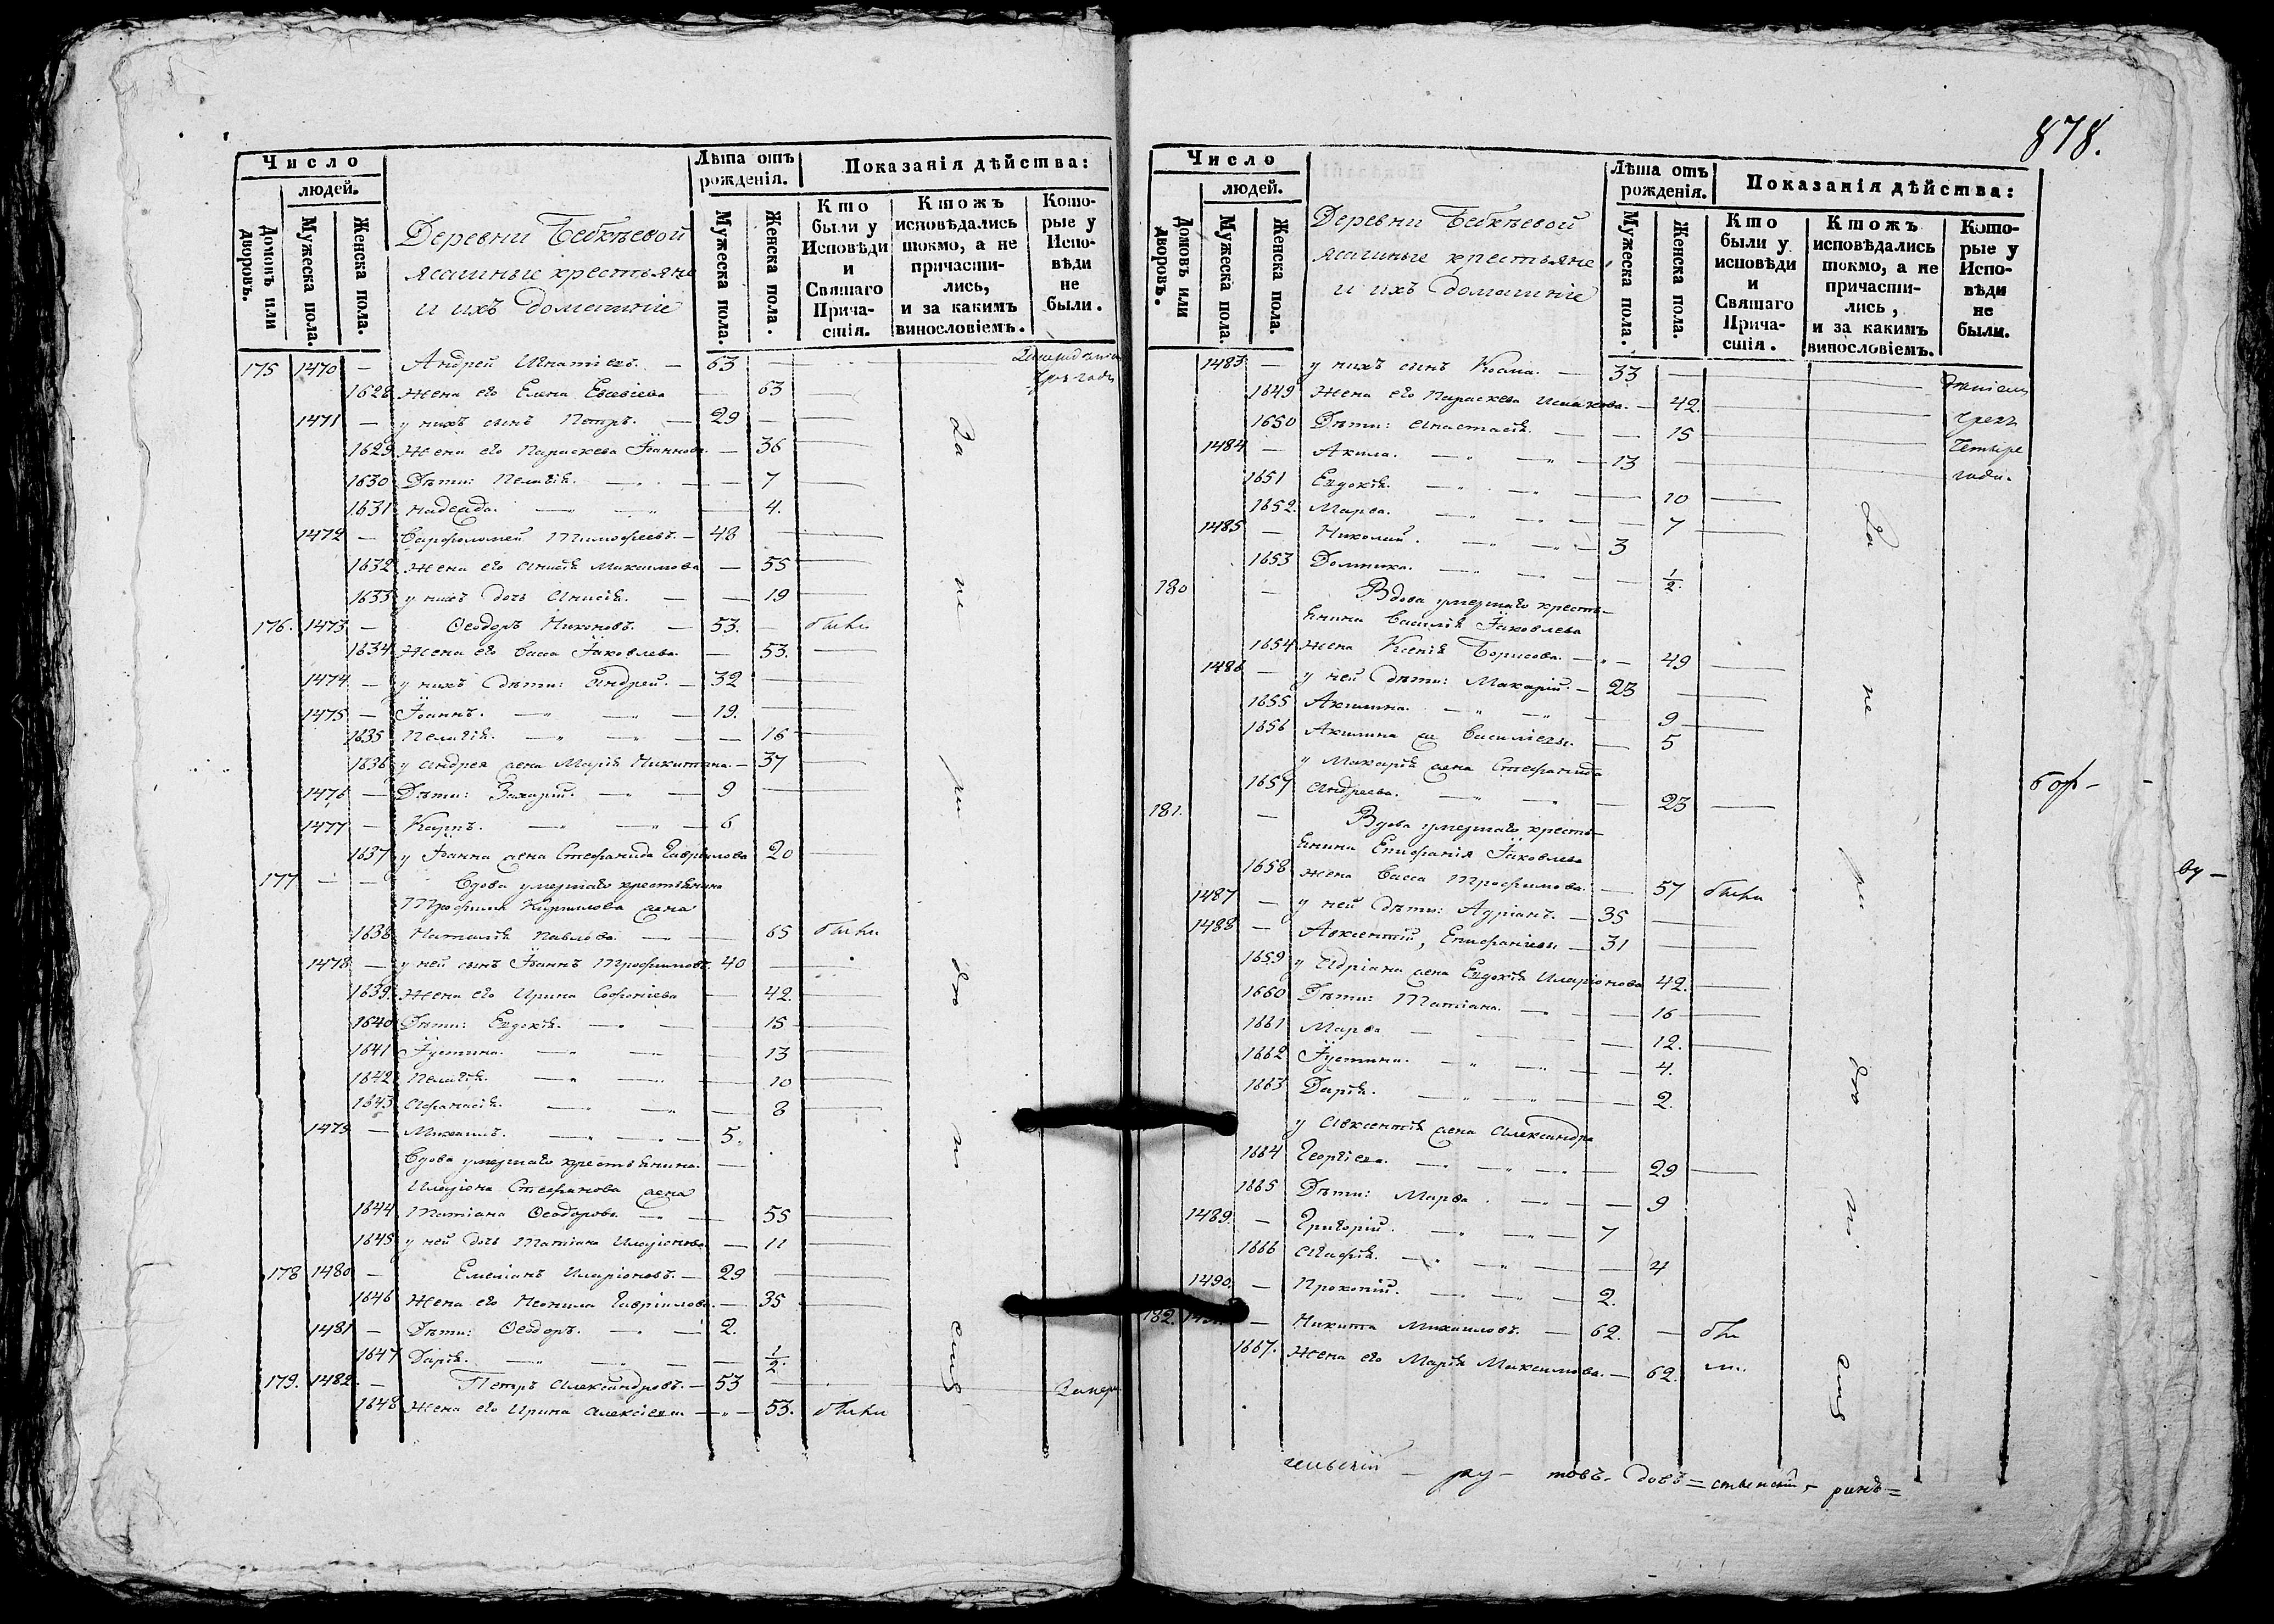 Число
людей.
Домовъ или дворовъ.
Мужеска пола.
Женска пола.
Деревни Бебкѣевой
ясашные крестьяне
и ихъ домашніе
Лѣта отъ рожденія.
Мужеска пола.
Женска пола.
Показанія дѣйства:
Кто были у Исповѣди и Святаго Причастія.
Ктожъ исповѣдались токмо, а не причастились, и за какимъ винословіемъ.
Которые у Исповѣди не были.
175 1470 — Андрей Игнатіевъ. — 63
1628 Жена его Елена Евсевіева — 63
1471 — у нихъ сынъ Петръ. — 29
1629 Жена его Параскева Іоаннова. — 36
1630 Дѣти: Пелагія. — 7
1631 Надежда. — 4.
1472 — Варфоломей Тимофеевъ. — 48
1632 Жена его Анисія Максимова — 55
1633 у нихъ дочь Анисія. — 19
176. 1473 — Ѳеодоръ Никоновъ. — 53. — были
1634 Жена его Васса Іаковлева. — 53.
1474 — у нихъ дѣти: Андрей. — 32
1475 — Іоаннъ. — 19.
1635 Пелагія. — 16
1636 у Андрея жена Марія Никитина. — 37
1476 — Дѣти: Захарій. — 9
1477 — Карпъ. — 6
1637 у Іоанна жена Стефанида Гавріилова 20
177 — — Вдова умершаго крестьянина
Трофима Кириллова жена
1638 Наталія Павлова. — 65 были
1478 — у ней сынъ Іоаннъ Трофимовъ. 40
1639. Жена его Ирина Софоніева — 42.
1640 Дѣти: Евдокія. — 15
1641 Іустина. — 13
1642 Пелагія. — 10
1643 Афанасія. — 8
1479 — Михаилъ. — 5.
Вдова умершаго крестьянина. —
Иларіона Стефанова жена
1644 Татіана Ѳеодорова. — 55
1645 у ней дочь Татіана Иларіонова. — 11
178 1480 — Емеліанъ Иларіоновъ. — 29
1646 Жена его Неонила Гавріилова. — 35
1481 — Дѣти: Ѳеодоръ. — 2.
1647 Дарія. — 1/2.
179. 1482. — Петръ Александровъ. — 53
1648 Жена его Ирина Алексіева — 53. были
За не ра дѣ ні емъ
878.
Число
людей.
Домовъ или дворовъ.
Мужеска пола.
Женска пола.
Деревни Бебкѣевой
ясашные крестьяне,
и ихъ домашніе
Лѣта отъ рожденія.
Мужеска пола.
Женска пола.
Показанія дѣйства:
Кто были у исповѣди и Святаго Причастія.
Ктожъ исповѣдались токмо, а не причастились, и за какимъ винословіемъ.
Которые у Исповѣди не были.
1483 — у нихъ сынъ Косма. — 33
1649 Жена его Параскева Исаакова. — 42. чрезъ
1650 Дѣти: Анастасія. — 15 четыре
1484 — Акила. — 13 года.
1651 Евдокія. — 10
1652. Марѳа. — 7
1485 — Николай. — 3
1653 Домника. — 1/2.
180 — Вдова умершаго кресть-
янина Василія Іаковлева
1654 жена Ксенія Борисова. — 49
1486 — у ней дѣти: Макарій. — 23
1655 Акилина. — 9
1656 Акилина же Васильевы. — 5
у Макарія жена Стефанида
1657 Андреева. — 23
181. — Вдова умершаго кресть-
янина Епифанія Іаковлева
1658 жена Васса Трофимова. — 57 были
1487 — у ней дѣти: Адріанъ. — 35
1488 — Авксентій, Епифаніевы — 31
1659 у Адріана жена Евдокія Иларіонова 42.
1660 Дѣти: Татіана. — 16
1661 Марѳа — 12.
1662 Іустина. — 4.
1663 Дарія. — 2.
у Авксентія жена Александра
1664 Георгіева. — 29
1665 Дѣти: Марѳа. — 9
1489. — Григорій. — 7
1666 Агафія. — 4
1490. — Прокопій. — 2.
182. — Никита Михаиловъ. — 62. — бы
1667. Жена его Марія Максимова. — 62. ли.
За не ра дѣ ні емъ